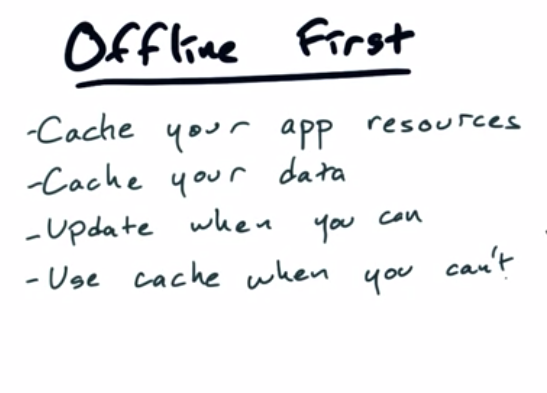 Offline First
-Cache your app resources
-Cache your data
-Update when you can
-Use cache when you can't